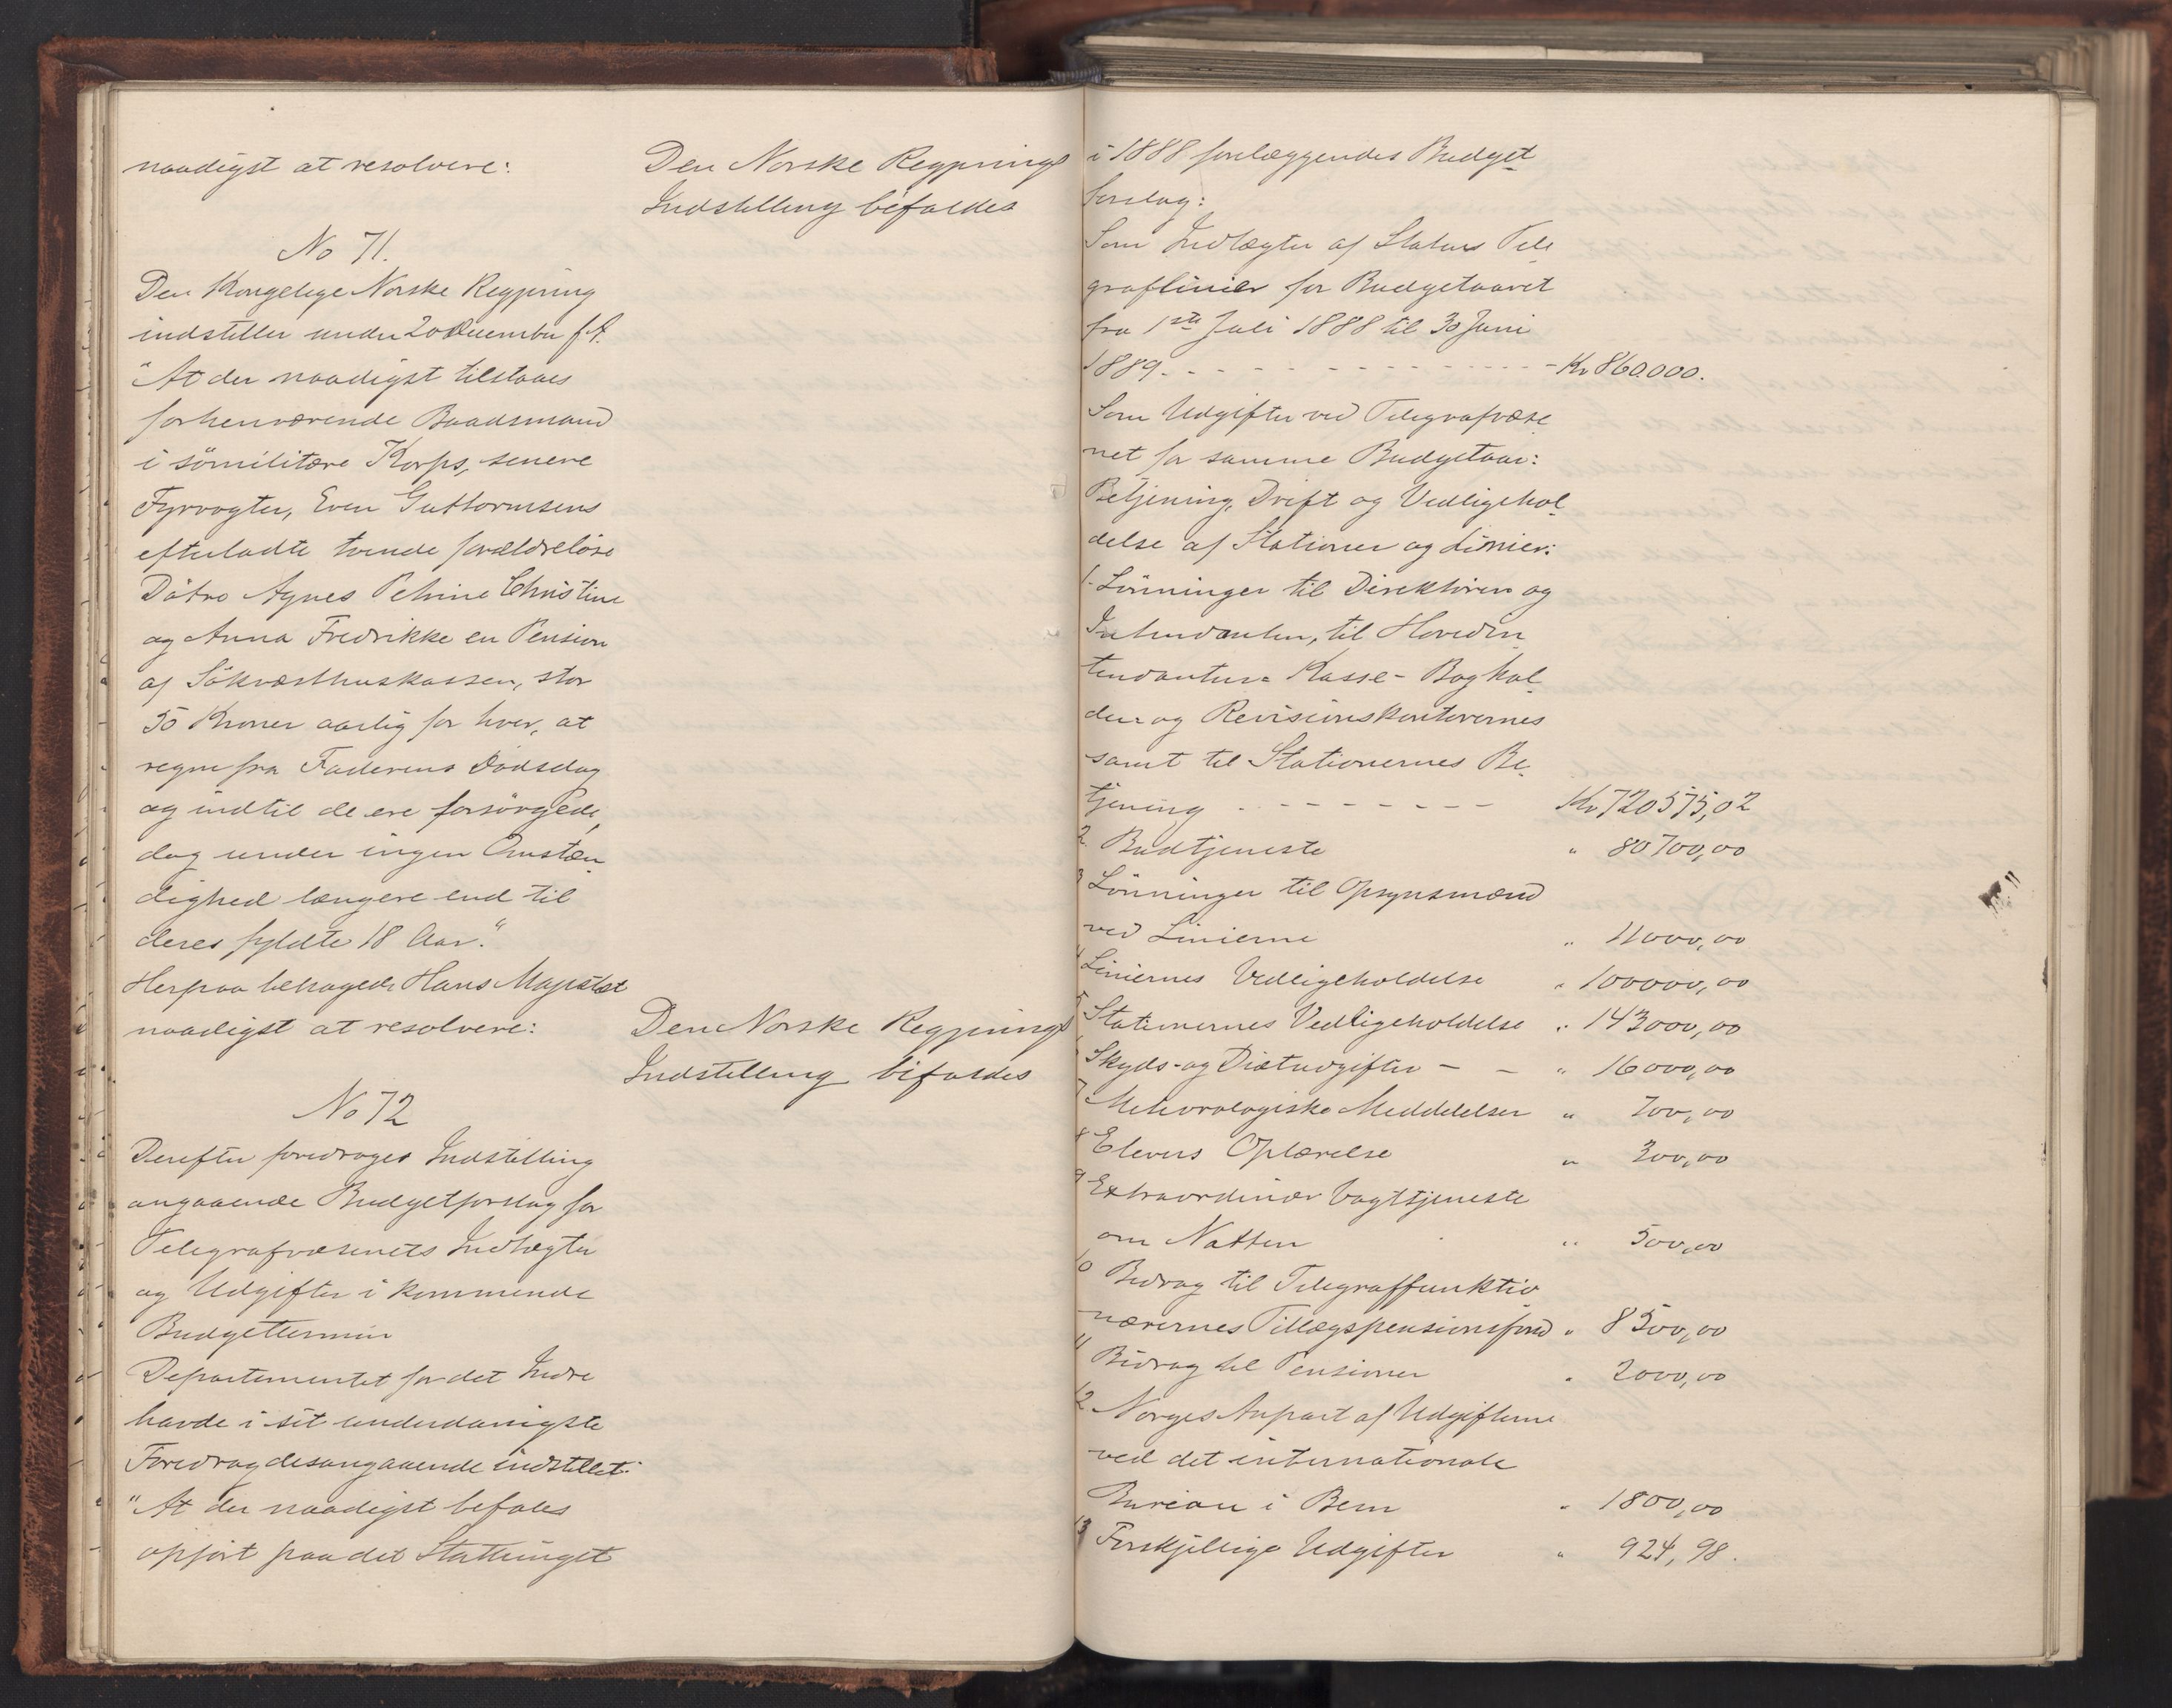 naadigst at resolvere:
Den Norske Regjerings
Indstilling bifaldes
No 71.
Den Kongelige Norske Regjering
indstiller under 20 December f.A.
"At der naadigst tilstaaes
forhenværende Baadsmand
i sömilitære Korps, senere
Fyrvogter, Even Guttormsens
efterladte tvende forældrelöse
Dötre Agnes Petrine Christine
og Anna Fredrikke en Pension
af Sökvæsthuskassen, stor
50 Kroner aarlig for hver, at
regne fra Faderens Dödsdag
og indtil de ere forsörgede,
dog under ingen Omstæn-
dighed længere end til
deres fyldte 18 Aar."
Herpaa behagede Hans Majestæt
naadigst at resolvere:
Den Norske Regjerings
Indstilling bifaldes
No 72
Derefter foredroges Indstilling
angaaende Budgetforslag for
Telegrafvæsenets Indtægter
og Udgifter i kommende
Budgettermin
Departementet for det Indre
havde i sit underdanigste
Foredrag desangaaende indstillet:
"At der naadigst befales
opfört paa det Storthinget
i 1888 forelæggendes Budget-
forslag:
Som Indtægter af Statens Tele-
graflinier for Budgetaaret
fra 1ste Juli 1888 til 30 Juni
1889 - - - - - - - - - - Kr 860.000.
Som Udgifter ved Telegrafvæse-
net for samme Budgetaar:
Betjening, Drift og Vedligehol-
delse af Stationer og Linier:
1. Lönninger til Direktören og
Intendanten, til Hovedin-
tendantens Kasse-Boghol-
der og Revisionskontorernes
samt til Stationernes Be-
tjening - - - - - - - Kr 720575,02
2. Budtjeneste " 80700,00
3 Lönninger til Opsynsmænd
ved Linierne " 11000,00
4 Liniernes Vedligeholdelse " 100000,00
5 Stationernes Vedligeholdelse " 143000,00
6 Skyds- og Diætudgifter - - " 16000,00
7 Meteorologiske Meddelelser " 700,00
8 Elevers Oplærelse " 300,00
9 Extraordinær Vagttjeneste
om Natten " 500,00
10 Bidrag til Telegraffunktio-
nærernes Tillægspensionsfond " 8500,00
11 Bidrag til Pensioner " 2000,00
12. Norges Anpart af Udgifterne
ved det internationale
Bureau i Bern " 1800,00
13 Forskjellige Udgifter " 924,98.